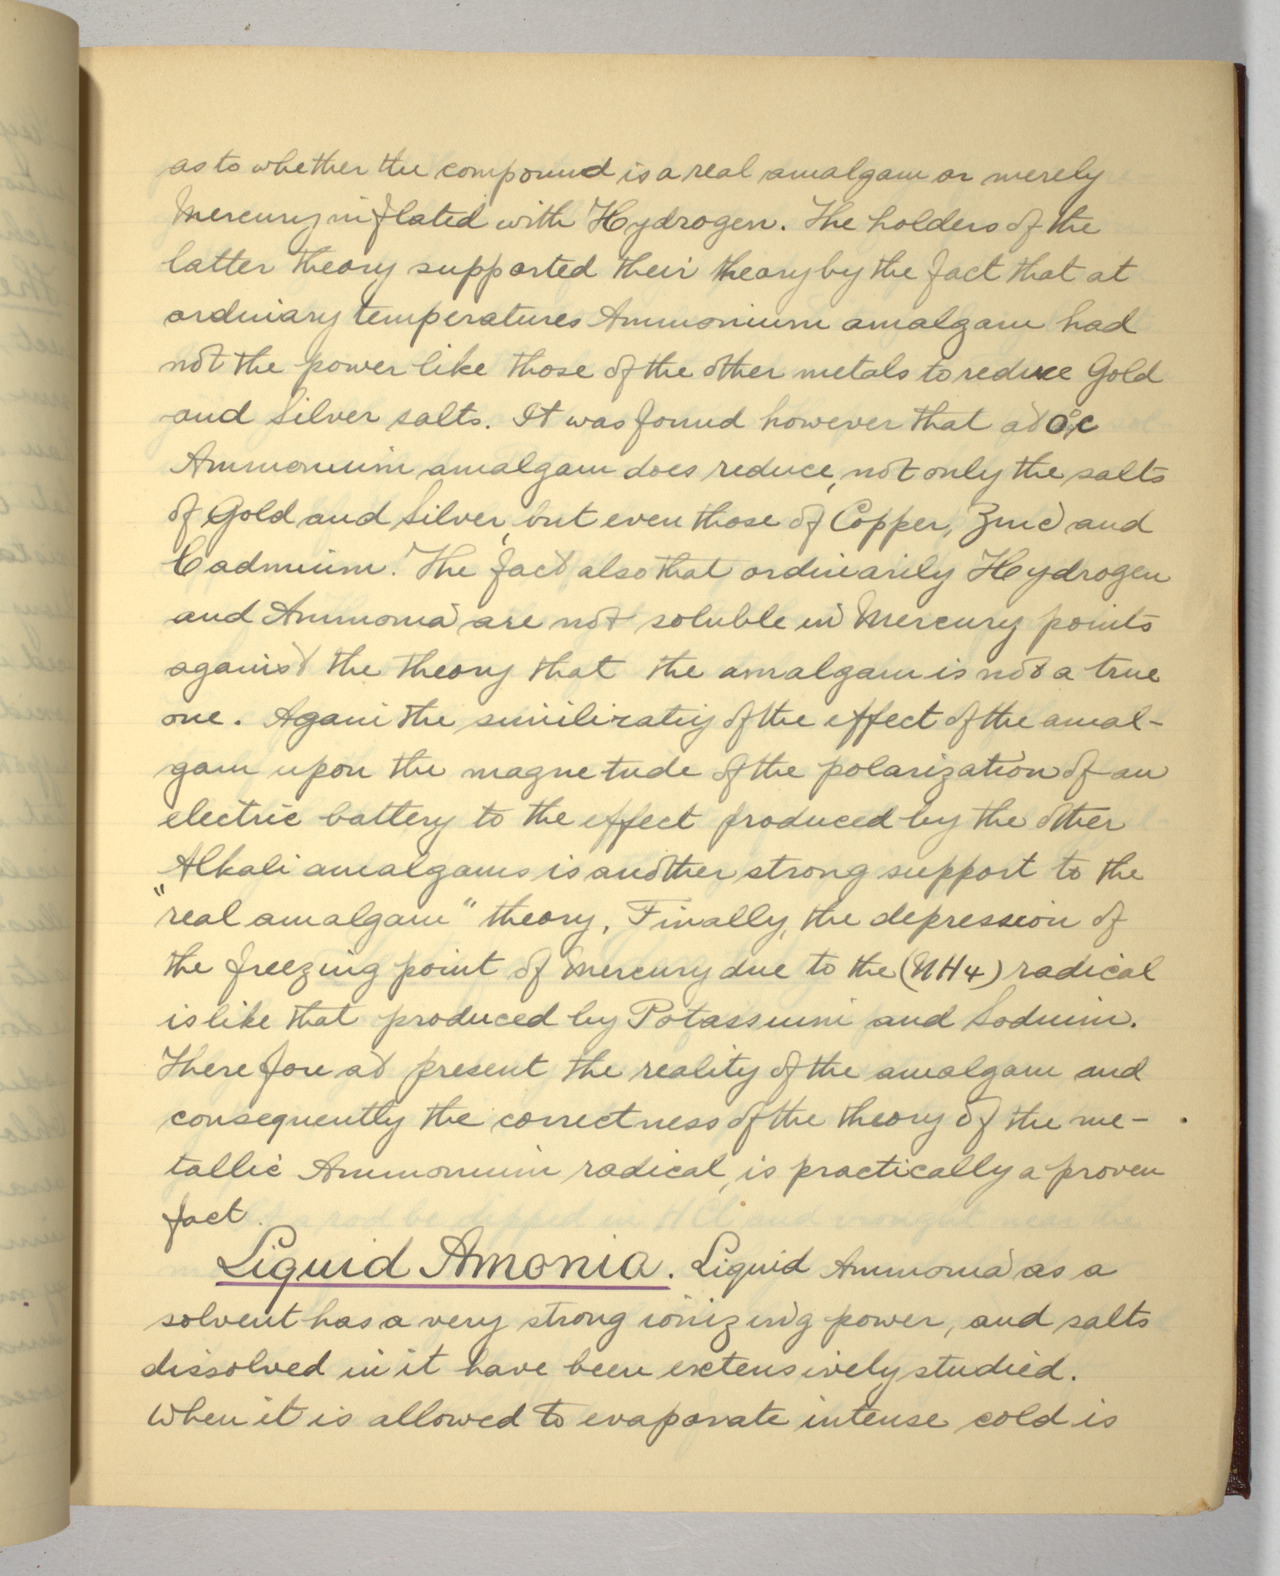 as to whether the compound is a real amalgam or merely
Mercury inflated with Hydrogen. The holders of the
latter theory supported their theory by the fact that at
ordinary temperatures Ammonium amalgam had
not the power like those of the other metals to reduce Gold
and Silver salts. It was found however that at 0°C
Ammonium amalgam does reduce, not only the salts
of Gold and Silver, but even those of Copper, Zinc and
Cadmium. The fact also that ordinarily Hydrogen
and Ammonia are not soluble in Mercury points
against the theory that the amalgam is not a true
one. Again the similiratiy of the effect of the amal-
gam upon the magnetude of the polarization of an
electric battery to the effect produced by the other
Alkali amalgams is another strong support to the
"real amalgam" theory. Finally, the depression of
the freezing point of Mercury due to the (NH4) radical
is like that produced by Potassium and Sodium.
Therefore at present the reality of the amalgam and
consequently the correctness of the theory of the me-
tallic Ammonium radical, is practically a proven
fact.
Liquid Amonia. Liquid Ammonia as a
solvent has a very strong ionizing power, and salts
dissolved in it have been extensively studied.
When it is allowed to evaporate intense cold is